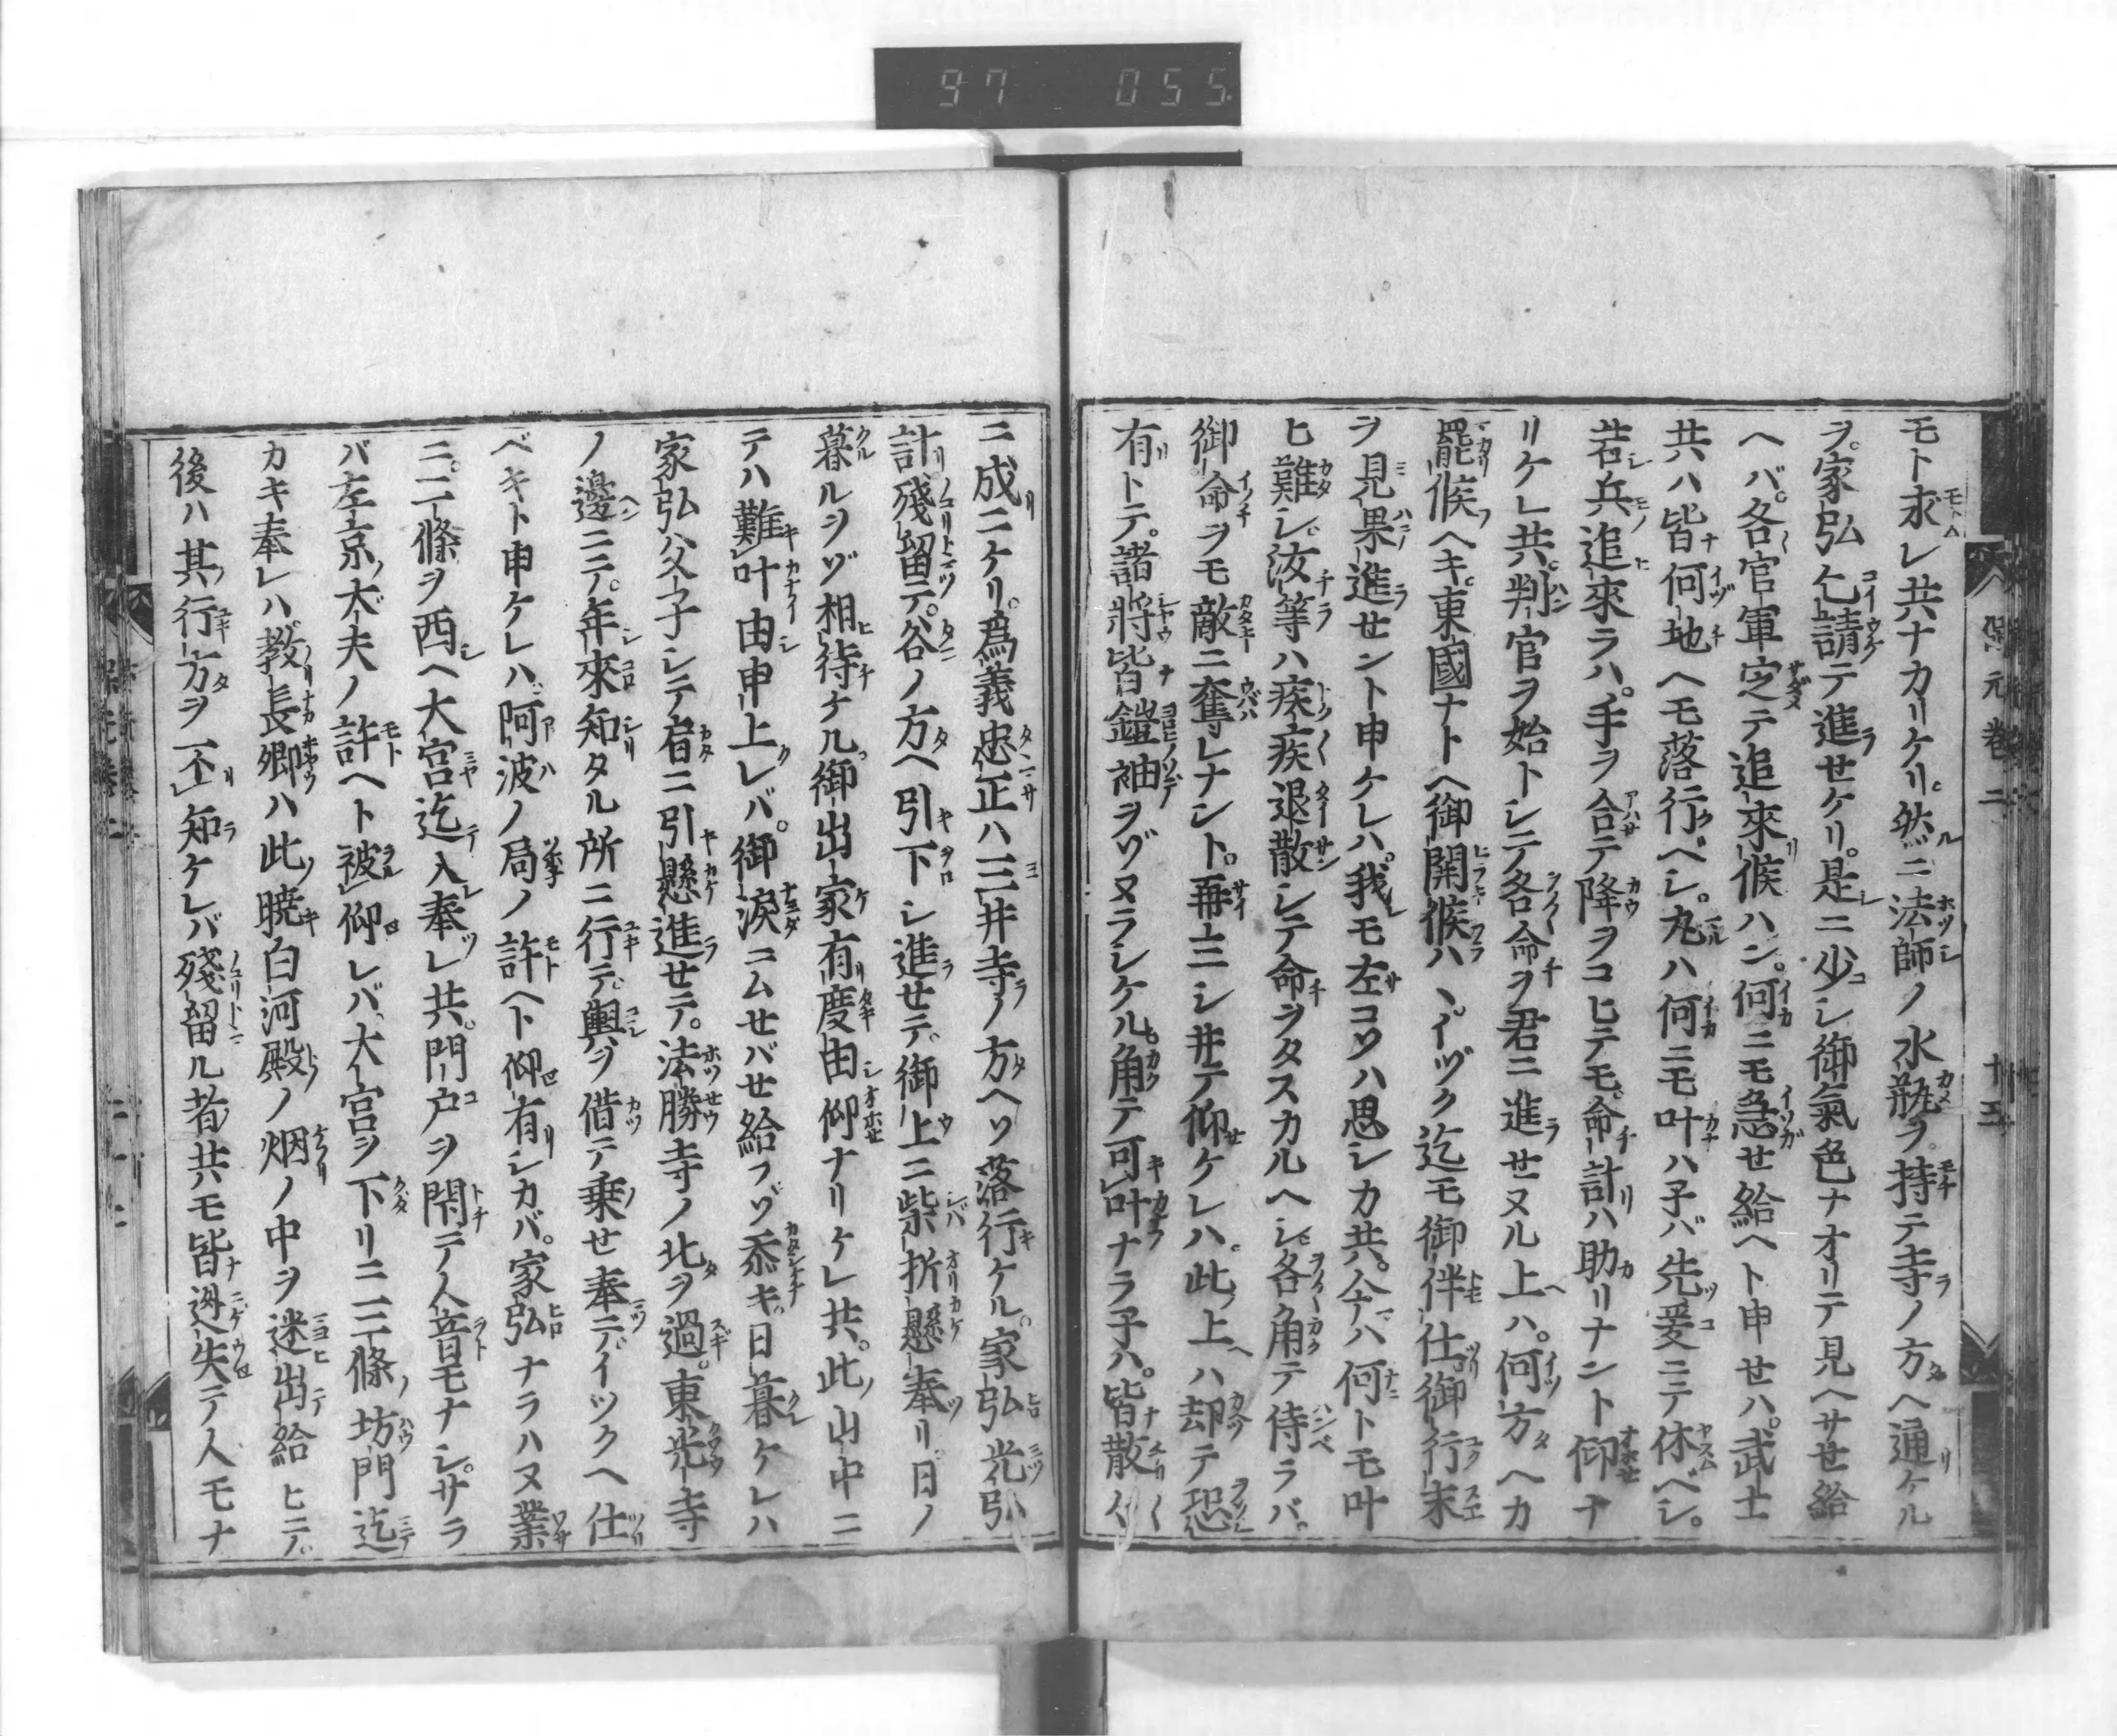 97 055
保元巻二
十五
モト求レ共ナカリケリ。然ニ法師ノ水瓶ヲ持テ寺ノ方ヘ通ケル
ヲ。家弘乞請テ進セケリ。是ニ少シ御氣色ナオリテ見ヘサセ給
ヘバ。各官軍定テ追來候ハン。何ニモ急セ給ヘト申セハ。武士
共ハ皆何地ヘモ落行ベシ。丸ハ何ニモ叶ハ子バ先爰ニテ休ベシ。
若兵追來ラハ。手ヲ合テ降ヲコヒテモ。命計ハ助リナント仰ナ
リケレ共。判官ヲ始トシテ各命ヲ君ニ進セヌル上ハ。何方ヘカ
罷候ヘキ。東國ナトヘ御開候ハヽ。イヅク迄モ御伴仕御行末
ヲ見果進セント申ケレハ。我モ左コソハ思シカ共。今ハ何トモ叶
ヒ難シ。汝等ハ疾疾退散シテ命ヲタスカルヘシ。各角テ侍ラバ。
御命ヲモ敵ニ奪レナント。再三シ井テ仰ケレハ。此上ハ却テ恐
有トテ。諸將皆鎧袖ヲヅヌラシケル。角テ可叶ナラ子ハ。皆散〱
ニ成ニケリ。爲義忠正ハ三井寺ノ方ヘソ落行ケル。家弘光弘
計殘留テ。谷ノ方ヘ引下シ進セテ。御上ニ柴折懸奉リ。日ノ
暮ルヲヅ相待ケル。御出家有度由仰ナリケレ共。此山中ニ
テハ難叶由申上レバ。御涙コムセバセ給フヅ忝キ。日暮ケレハ
家弘父子シテ肩ニ引懸進セテ。法勝寺ノ北ヲ過。東光寺
ノ邊ニテ。年來知タル所ニ行テ。輿ヲ借テ乗セ奉テ。イツクヘ仕
ベキト申ケレハ。阿波ノ局ノ許ヘト仰有シカバ。家弘ナラハヌ業
ニ。二條ヲ西ヘ大宮迄入奉レ共。門戸ヲ閇テ人音モナシ。サラ
バ左京大夫ノ許ヘト被仰レバ。大宮ヲ下リニ三條坊門迄
カキ奉レハ。教長卿ハ此暁白河殿ノ烟ノ中ヲ迷出給ヒテ。
後ハ其行方ヲ不知ケレバ殘留ル者共モ皆迯失テ人モナ